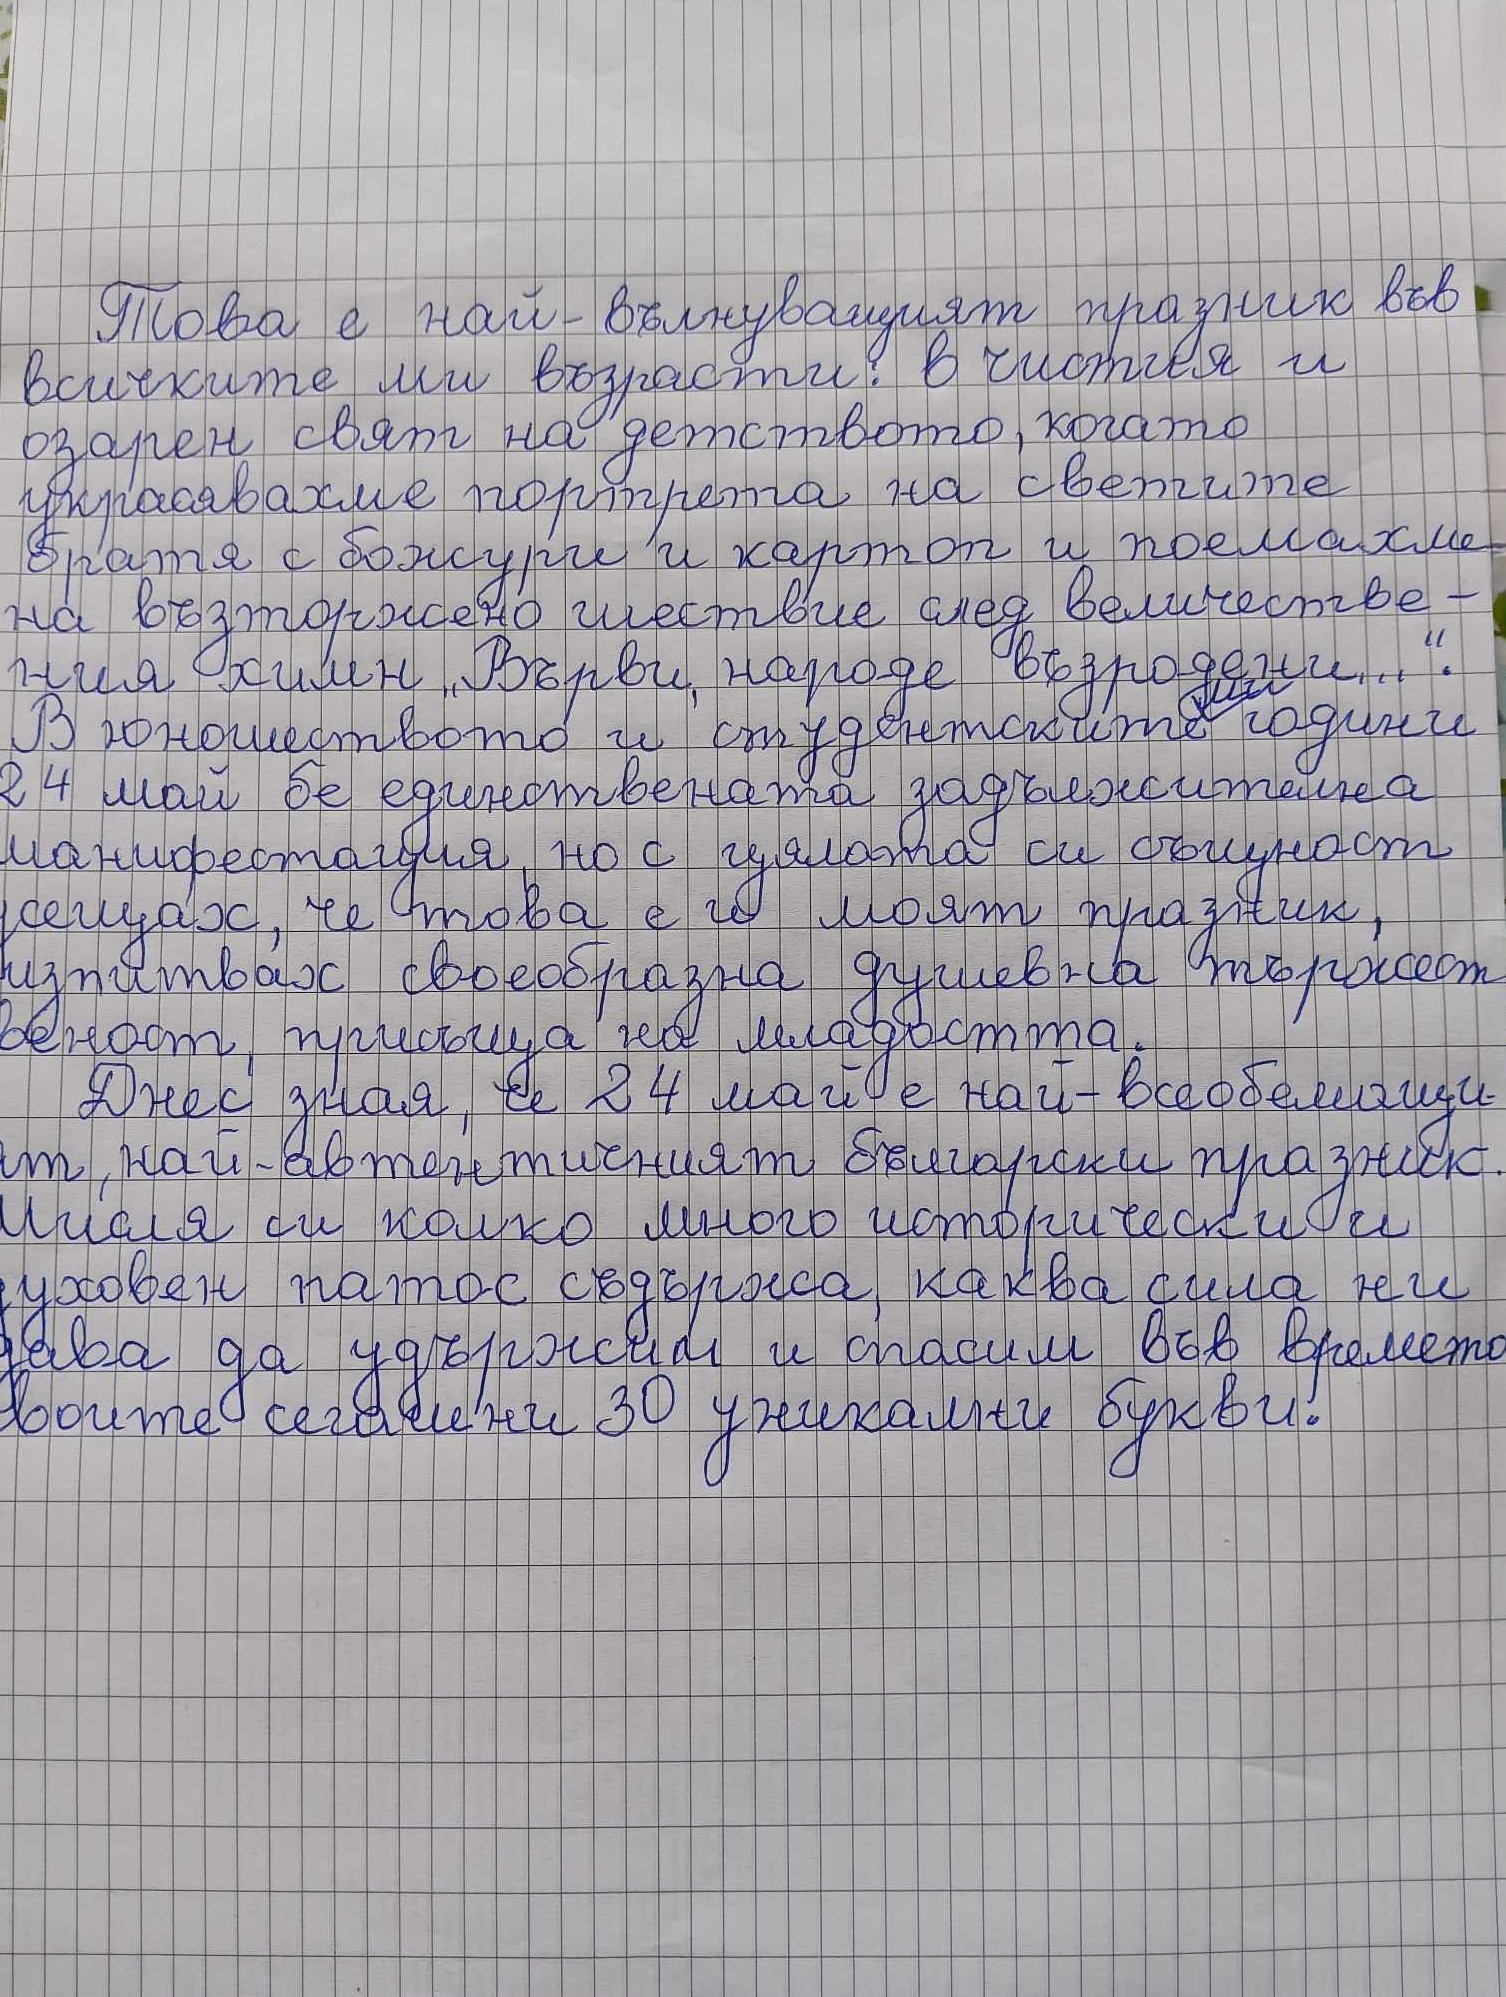 Това е най-вълнуващият празник във
всичките ми възрасти: в чистия и
озарен свят на детството, когато
украсявахме портрета на светите
братя с божури и картоп и поемахме
на възторжено шествие след величестве-
ния химн „Върви, народе възродени...“.
В юношеството и студентските ми години
24 май бе единствената задължителна
манифестация, но с цялата си същност
усещах, че това е и моят празник,
изпитвах своеобразна душевна тържест
веност, присъща на младостта.
Днес зная, че 24 май е най-всеобемащи-
ят, най-автентичният български празник.
Мисля си колко много исторически и
духовен патос съдържа, каква сила ни
дава да удържим и спасим във времето
своите сегашни 30 уникални букви.